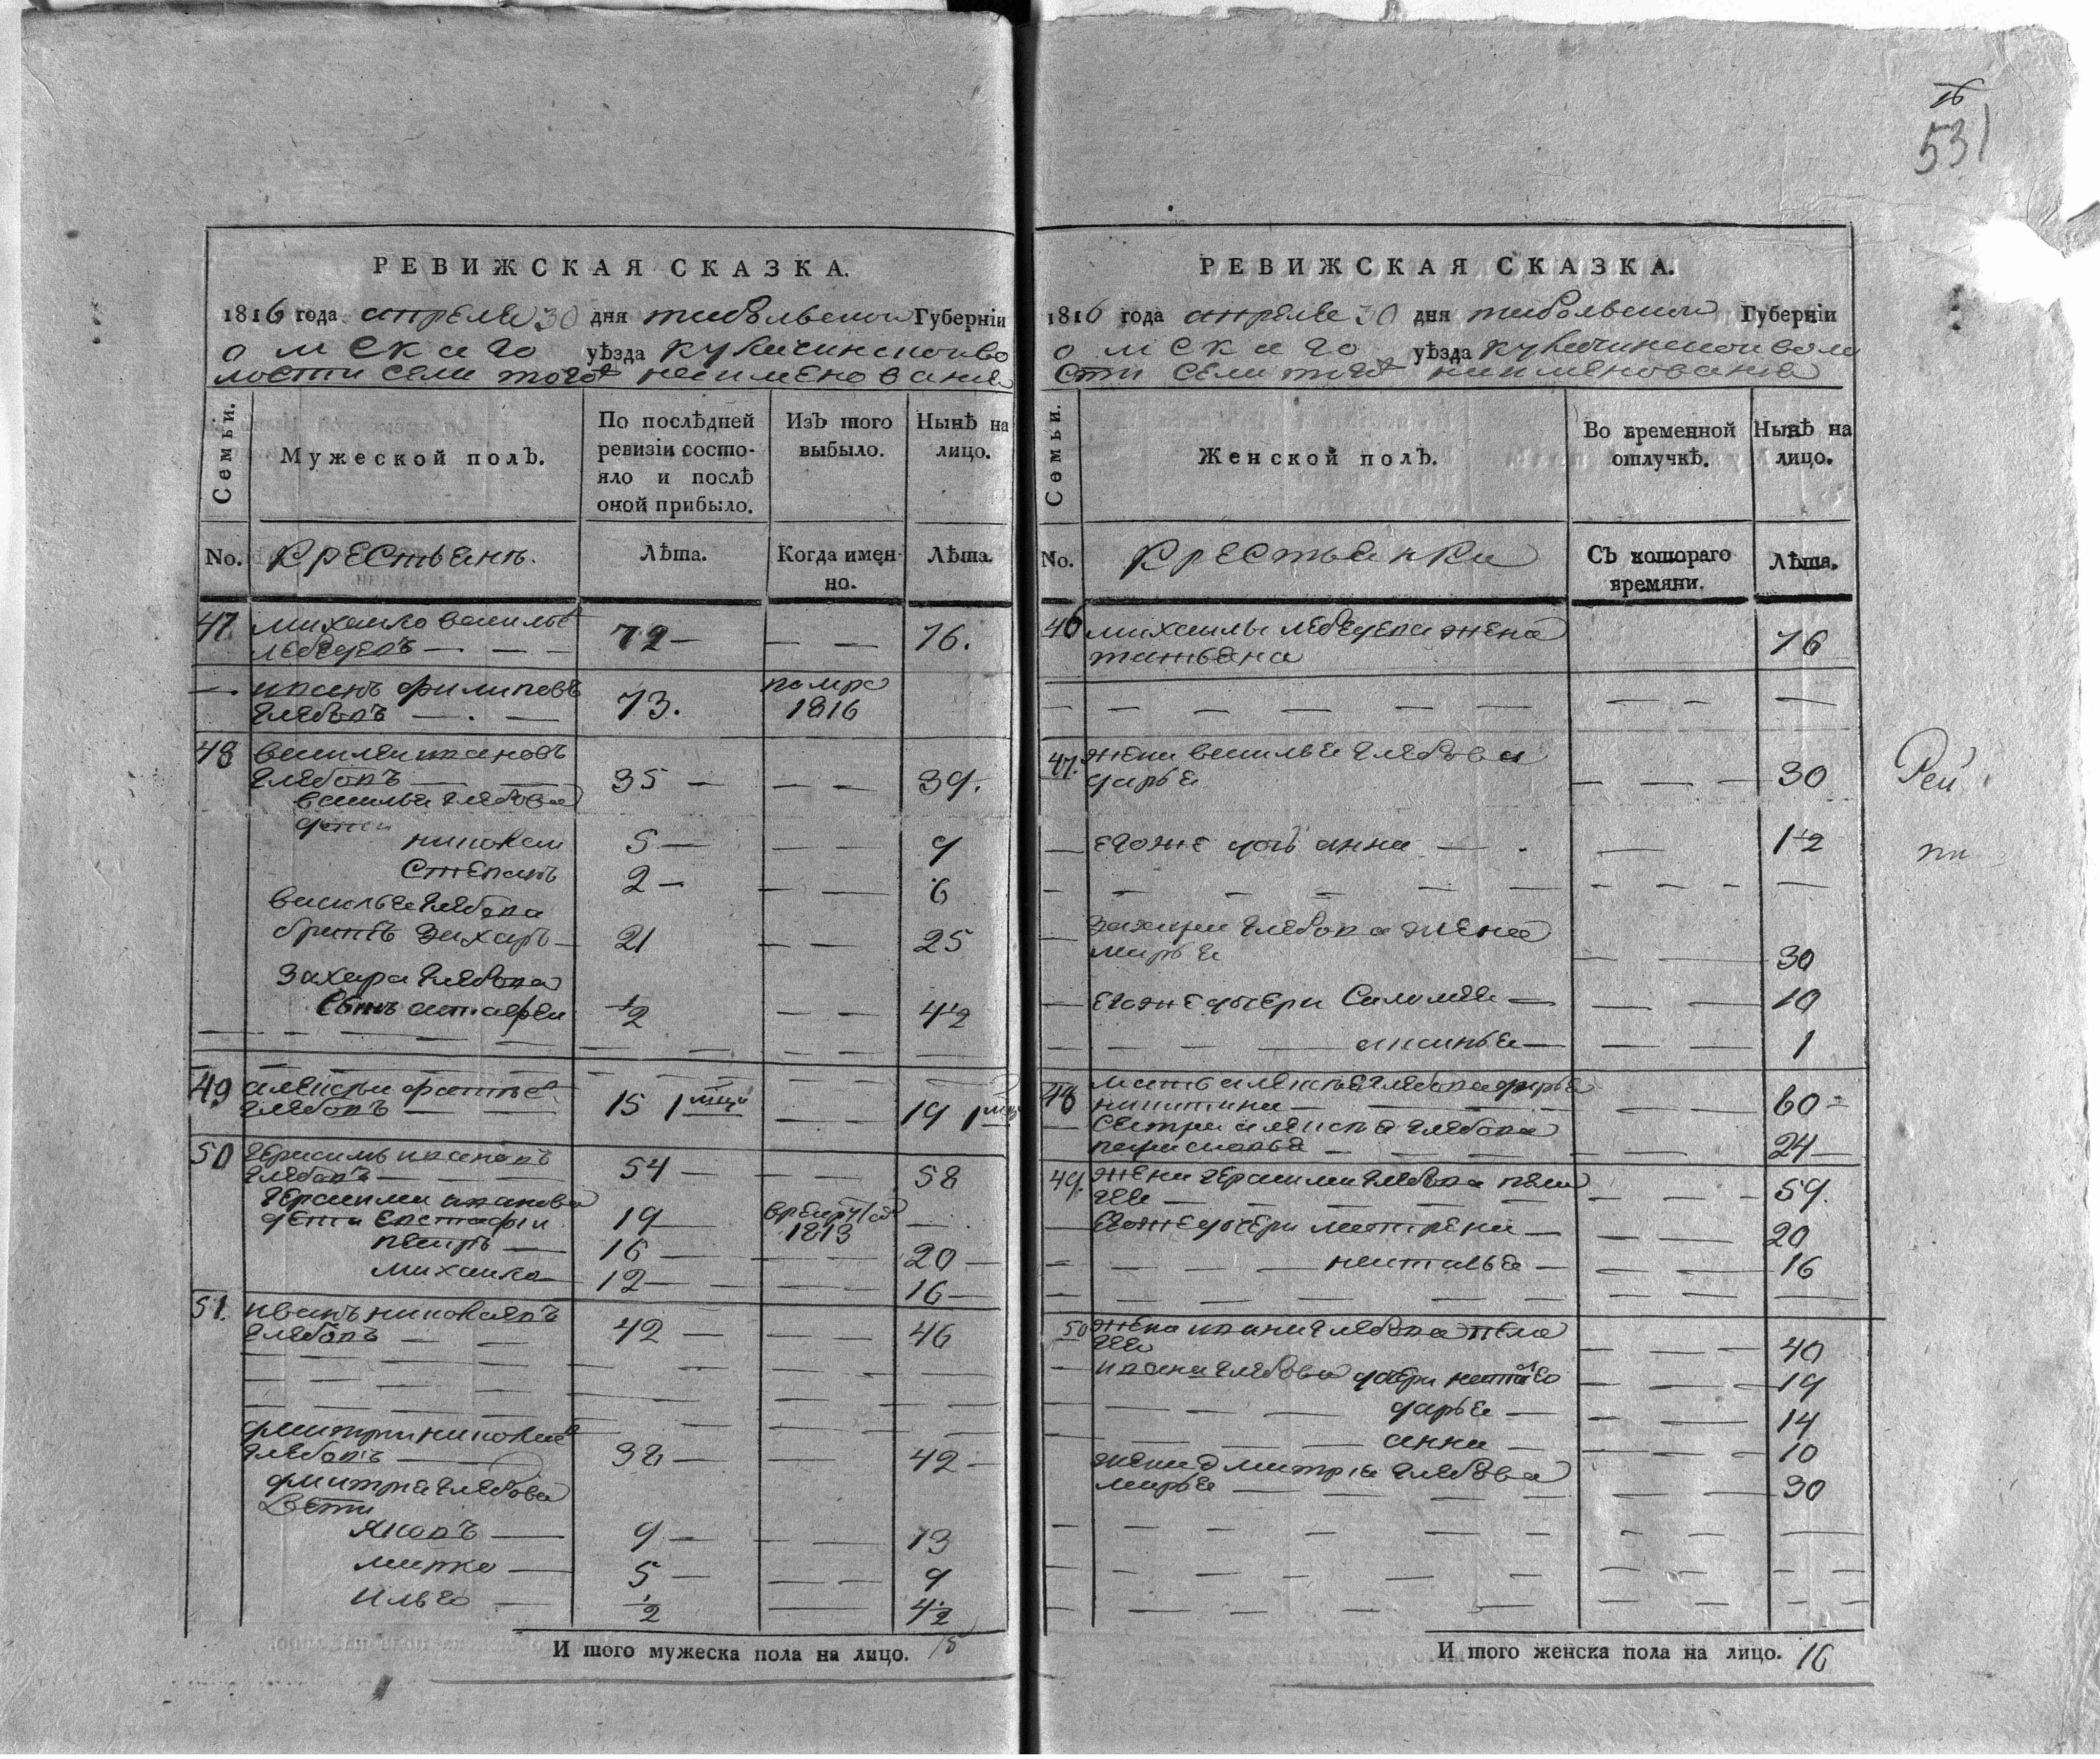 16
531
РЕВИЖСКАЯ СКАЗКА.
1816 года апреля 30 дня тобольской Губерніи
омскаго уѣзда кулачинской во
лости села того наименования
Семьи.
Мужеской полЪ.
По послѣдней
ревизіи состо-
яло и послѣ
оной прибыло.
ИзЪ того
выбыло.
НынѢ на
лицо.
No.
крестьянъ.
Лѣта.
Когда имен-
но.
Лѣта.
47 михайло василье
лебедевъ 72 76.
иван филиповъ помре
глебовъ 73. 1816
48 василеи ивановъ
глебовъ 35 39.
василья глебова
дети
николаи 5 9
степанъ 2 6
василья глебова
братъ захаръ 21 25
захара глебова
сынъ астафеи 1/2 4 1/2
49 алексеи фатее
глебовъ 15 1 19 1
50 герасимъ ивановъ
глебовъ 54 58
герасима иванова
дети евстафеи 19 1813
петръ 16 20
михаило 12 16
51. иванъ николаевъ
глебовъ 42 46
дмитри николае
глебовъ 38 42
дмитрея глебова
дети
яковъ 9 13
марко 5 9
илья 1/2 4 1/2
И того мужеска пола на лицо. 15
РЕВИЖСКАЯ СКАЗКА.
1816 года апреля 30 дня тобольской Губерніи
омскаго уѣзда кулачинской воло
сти села того наименования
Семьи.
Женской полЪ.
Во временной
отлучкѢ.
НынѢ на
лицо.
No.
крестьянки
СЪ котораго
времяни.
Лѣта.
46 михаилы лебедева жена
татьяна 76
47. жена василья глебова
дарья 30
егоже дочь анна 1 1/2
захара глебова жена
марья 30
егоже дочери саломея 10
аксинья 1
48 мать алексея глебова дарья
никитина 60
сестра алексея глебова
парасковья 24
49. жена герасима глебова пела
гея 59.
егоже дочери матрена 20
наталья 16
50 жена ивана глебова пела
гея 40
ивана глебова дочери наталья 19
дарья 14
анна 10
жена дмитрея глебова
марья 30
И того женска пола на лицо. 16